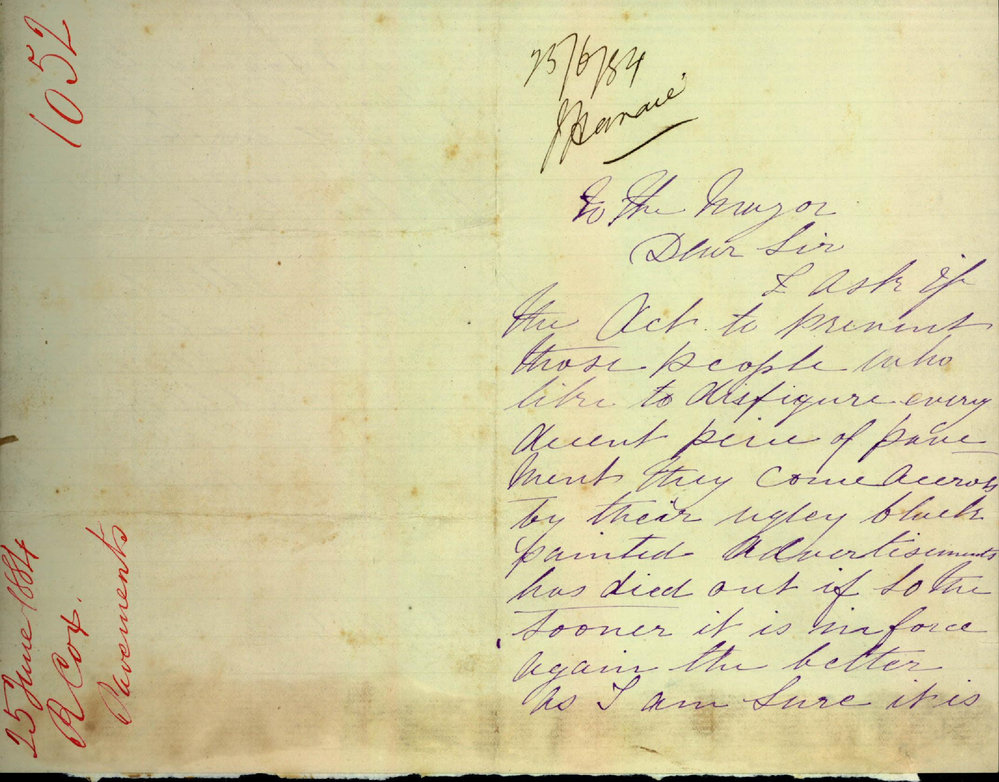 1052
25 June 1884
R Cox.
Pavements
25/6/84
To The Mayor
Dear Sir
I ask if
the Act to prevent
those people who
like to disfigure every
decent peice of pave
ment they come accross
by their ugley black
painted advertisements
has died out if so the
sooner it is in force
again the better
as I am sure it is